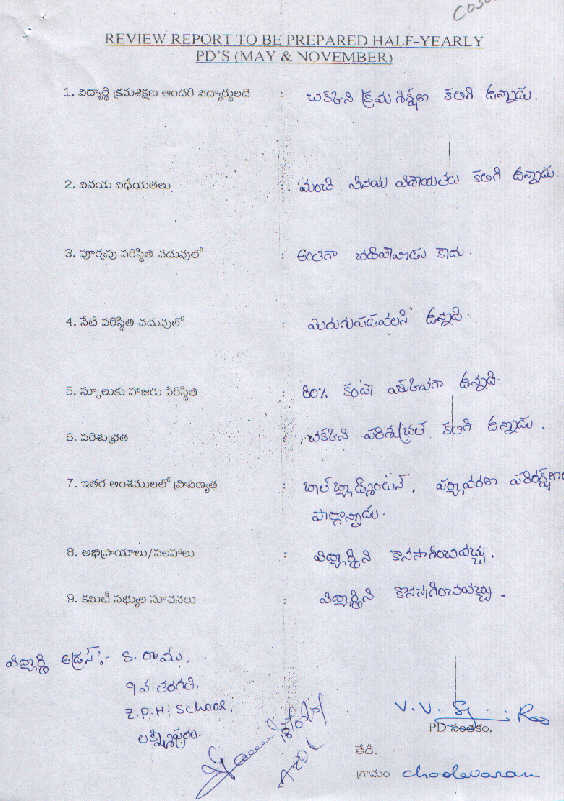 REVIEW REPORT TO BE PREPARED HALF-YEARLY
PD'S (MAY & NOVEMBER)
1. విద్యార్థి క్రమశిక్షణ అందరి విద్యార్థులతో : చక్కని క్రమశిక్షణ కలిగి ఉన్నాడు.
2. వినయ విధేయతలు : మంచి వినయ విధేయతలు కలిగి ఉన్నాడు.
3. పూర్వపు పరిస్థితి చదువులో : అంతగా చదివేవాడు కాదు.
4. నేటి పరిస్థితి చదువులో : మెరుగుపడవలసి ఉన్నది.
5. స్కూలుకు హాజరు పరిస్థితి : 80% కంటె ఎక్కువగా ఉన్నది.
6. పరిశుభ్రత : చక్కని పరిశుభ్రత కలిగి ఉన్నాడు.
7. ఇతర అంశములలో ప్రావీణ్యత : బాల్ బ్యాడ్మింటన్, పర్యావరణ
పాల్గొన్నాడు.
8. అభిప్రాయాలు/సలహాలు : విద్యార్థిని కొనసాగించవచ్చు.
9. కమిటీ సభ్యుల సూచనలు : విద్యార్థిని కొనసాగించవచ్చు.
విద్యార్థి అడ్రస్:- S. రాము,
9వ తరగతి,
Z.P.H. School,
లక్ష్మీపురం.
V.V.
PD సంతకం.
తేది.
గ్రామం chodavaram